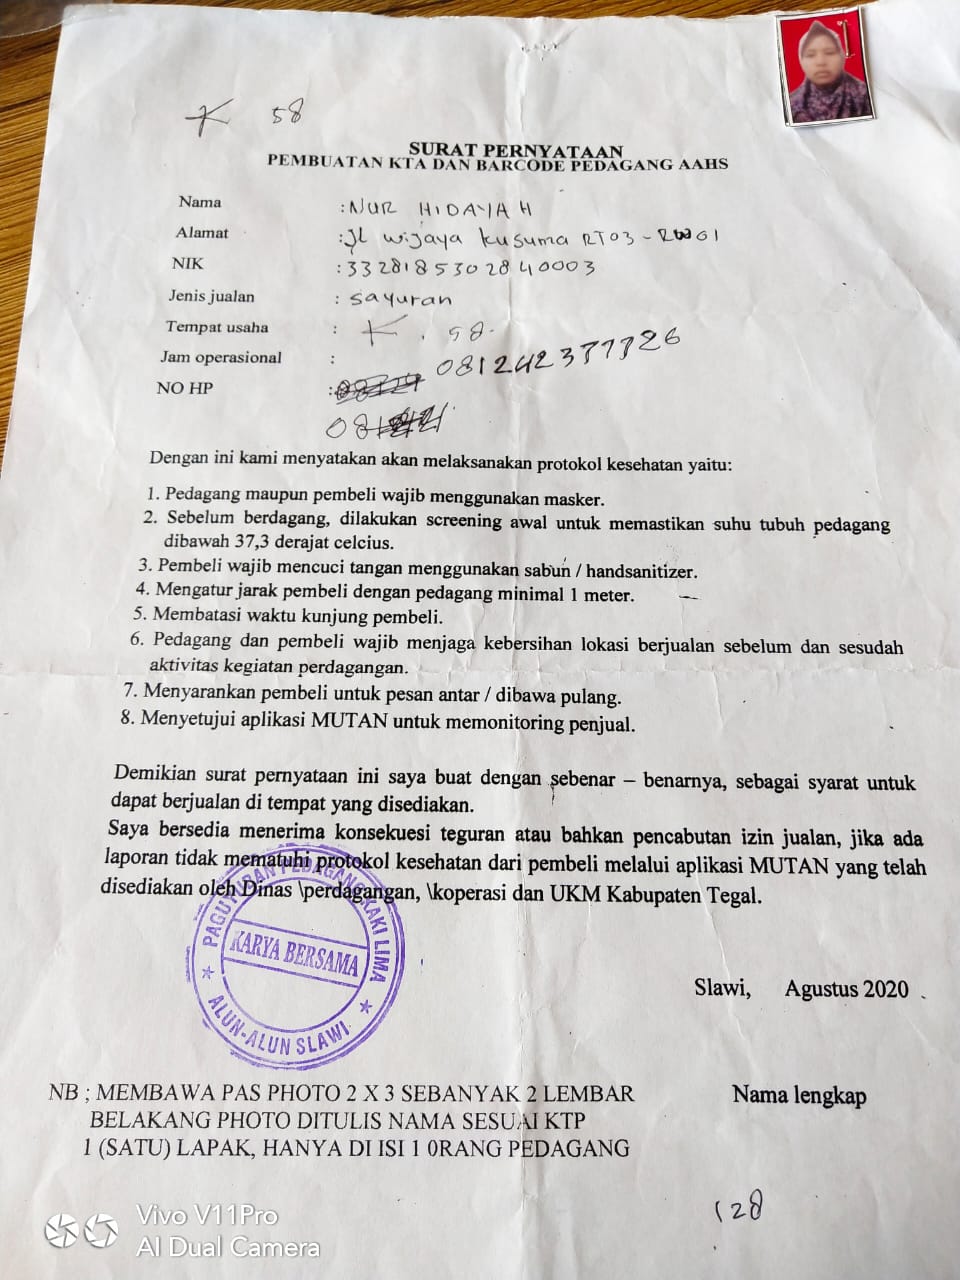 K 58
SURAT PERNYATAAN
PEMBUATAN KTA DAN BARCODE PEDAGANG AAHS
Nama : NUR HIDAYAH
Alamat : Jl wijaya kusuma RT03 - RW01
NIK : 3328185302840003
Jenis jualan : sayuran
Tempat usaha : K. 58.
Jam operasional :
NO HP : 081242377726
08
Dengan ini kami menyatakan akan melaksanakan protokol kesehatan yaitu:
1. Pedagang maupun pembeli wajib menggunakan masker.
2. Sebelum berdagang, dilakukan screening awal untuk memastikan suhu tubuh pedagang
dibawah 37,3 derajat celcius.
3. Pembeli wajib mencuci tangan menggunakan sabun / handsanitizer.
4. Mengatur jarak pembeli dengan pedagang minimal 1 meter.
5. Membatasi waktu kunjung pembeli.
6. Pedagang dan pembeli wajib menjaga kebersihan lokasi berjualan sebelum dan sesudah
aktivitas kegiatan perdagangan.
7. Menyarankan pembeli untuk pesan antar / dibawa pulang.
8. Menyetujui aplikasi MUTAN untuk memonitoring penjual.
Demikian surat pernyataan ini saya buat dengan sebenar – benarnya, sebagai syarat untuk
dapat berjualan di tempat yang disediakan.
Saya bersedia menerima konsekuesi teguran atau bahkan pencabutan izin jualan, jika ada
laporan tidak mematuhi protokol kesehatan dari pembeli melalui aplikasi MUTAN yang telah
disediakan oleh Dinas \perdagangan, \koperasi dan UKM Kabupaten Tegal.
PAGUYUBAN PEDAGANG KAKI LIMA
KARYA BERSAMA
ALUN-ALUN SLAWI
Slawi, Agustus 2020
NB ; MEMBAWA PAS PHOTO 2 X 3 SEBANYAK 2 LEMBAR
BELAKANG PHOTO DITULIS NAMA SESUAI KTP
1 (SATU) LAPAK, HANYA DI ISI 1 0RANG PEDAGANG
Nama lengkap
128
Vivo V11Pro
AI Dual Camera